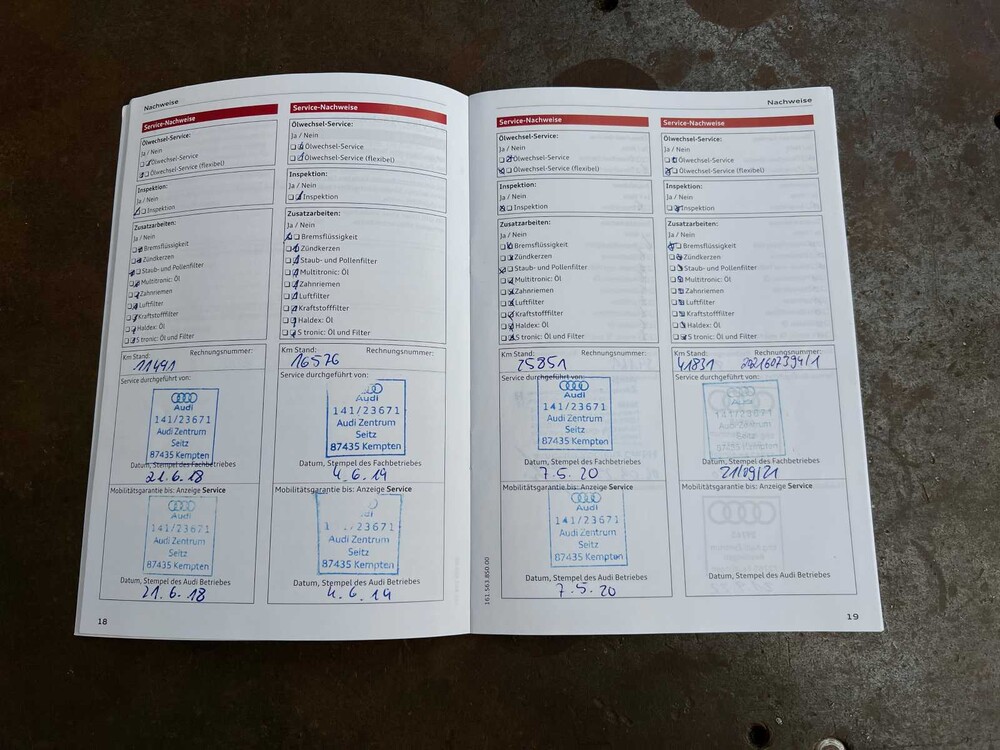 Nachweise
Service-Nachweise
Ölwechsel-Service:
Ja / Nein
Ölwechsel-Service
Ölwechsel-Service (flexibel)
Inspektion:
Ja / Nein
Inspektion
Zusatzarbeiten:
Ja / Nein
Bremsflüssigkeit
Zündkerzen
Staub- und Pollenfilter
Multitronic: Öl
Zahnriemen
Luftfilter
Kraftstofffilter
Haldex: Öl
S tronic: Öl und Filter
Km Stand: Rechnungsnummer:
11491
Service durchgeführt von:
Audi
141/23671
Audi Zentrum
Seitz
87435 Kempten
Datum, Stempel des Fachbetriebes
21.6.18
Mobilitätsgarantie bis: Anzeige Service
Audi
141/23671
Audi Zentrum
Seitz
87435 Kempten
Datum, Stempel des Audi Betriebes
21.6.18
18
Service-Nachweise
Ölwechsel-Service:
Ja / Nein
Ölwechsel-Service
Ölwechsel-Service (flexibel)
Inspektion:
Ja / Nein
Inspektion
Zusatzarbeiten:
Ja / Nein
Bremsflüssigkeit
Zündkerzen
Staub- und Pollenfilter
Multitronic: Öl
Zahnriemen
Luftfilter
Kraftstofffilter
Haldex: Öl
S tronic: Öl und Filter
Km Stand: Rechnungsnummer:
16576
Service durchgeführt von:
Audi
141/23671
Audi Zentrum
Seitz
87435 Kempten
Datum, Stempel des Fachbetriebes
4.6.19
Mobilitätsgarantie bis: Anzeige Service
Audi
141/23671
Audi Zentrum
Seitz
87435 Kempten
Datum, Stempel des Audi Betriebes
4.6.19
Nachweise
Service-Nachweise
Ölwechsel-Service:
Ja / Nein
Ölwechsel-Service
Ölwechsel-Service (flexibel)
Inspektion:
Ja / Nein
Inspektion
Zusatzarbeiten:
Ja / Nein
Bremsflüssigkeit
Zündkerzen
Staub- und Pollenfilter
Multitronic: Öl
Zahnriemen
Luftfilter
Kraftstofffilter
Haldex: Öl
S tronic: Öl und Filter
Km Stand: Rechnungsnummer:
25851
Service durchgeführt von:
Audi
141/23671
Audi Zentrum
Seitz
87435 Kempten
Datum, Stempel des Fachbetriebes
7.5.20
Mobilitätsgarantie bis: Anzeige Service
Audi
141/23671
Audi Zentrum
Seitz
87435 Kempten
Datum, Stempel des Audi Betriebes
7.5.20
161.563.850.00
Service-Nachweise
Ölwechsel-Service:
Ja / Nein
Ölwechsel-Service
Ölwechsel-Service (flexibel)
Inspektion:
Ja / Nein
Inspektion
Zusatzarbeiten:
Ja / Nein
Bremsflüssigkeit
Zündkerzen
Staub- und Pollenfilter
Multitronic: Öl
Zahnriemen
Luftfilter
Kraftstofffilter
Haldex: Öl
S tronic: Öl und Filter
Km Stand: Rechnungsnummer:
41831
Service durchgeführt von:
Audi
Datum, Stempel des Fachbetriebes
21/09/21
Mobilitätsgarantie bis: Anzeige Service
Datum, Stempel des Audi Betriebes
19